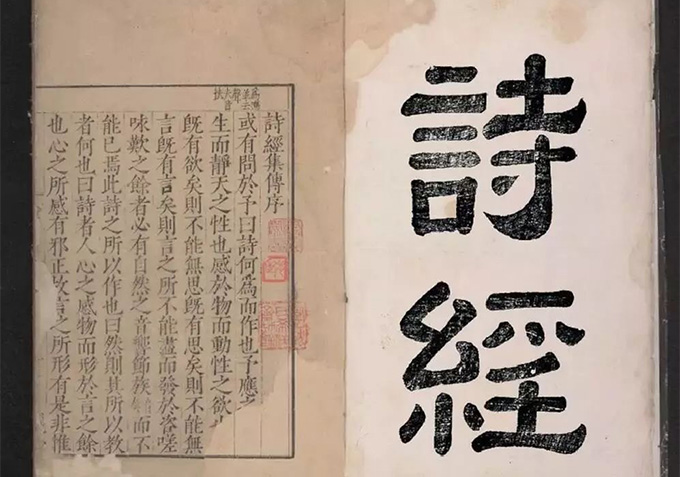 詩經
詩經集傳序
或有問於予曰詩何爲而作也予應之
生而靜天之性也感於物而動性之欲也
既有欲矣則不能無思既有思矣則不能無
言既有言矣則言之所不能盡而發於咨嗟
咏歎之餘者必有自然之音響節族而不
能已焉此詩之所以作也曰然則其所以教
者何也曰詩者人心之感物而形於言之餘
也心之所感有邪正故言之所形有是非惟